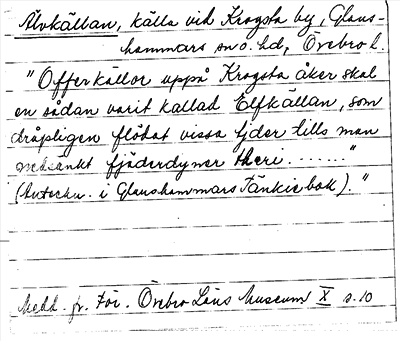 Älvkällan, källa vid Krogsta by, Glans-
hammars sn o. hd, Örebro l.
"Offerkällor uppå Krogsta åker skal
en sådan varit kallad Elfkällan, som
dråpligen flödat vissa tjder tills man
nedsänkt fjäderdyner theri......."
(Anteckn. i Glanshammars Tänkiebok)."
Medd. fr. För. Örebro Läns Museum X s. 10